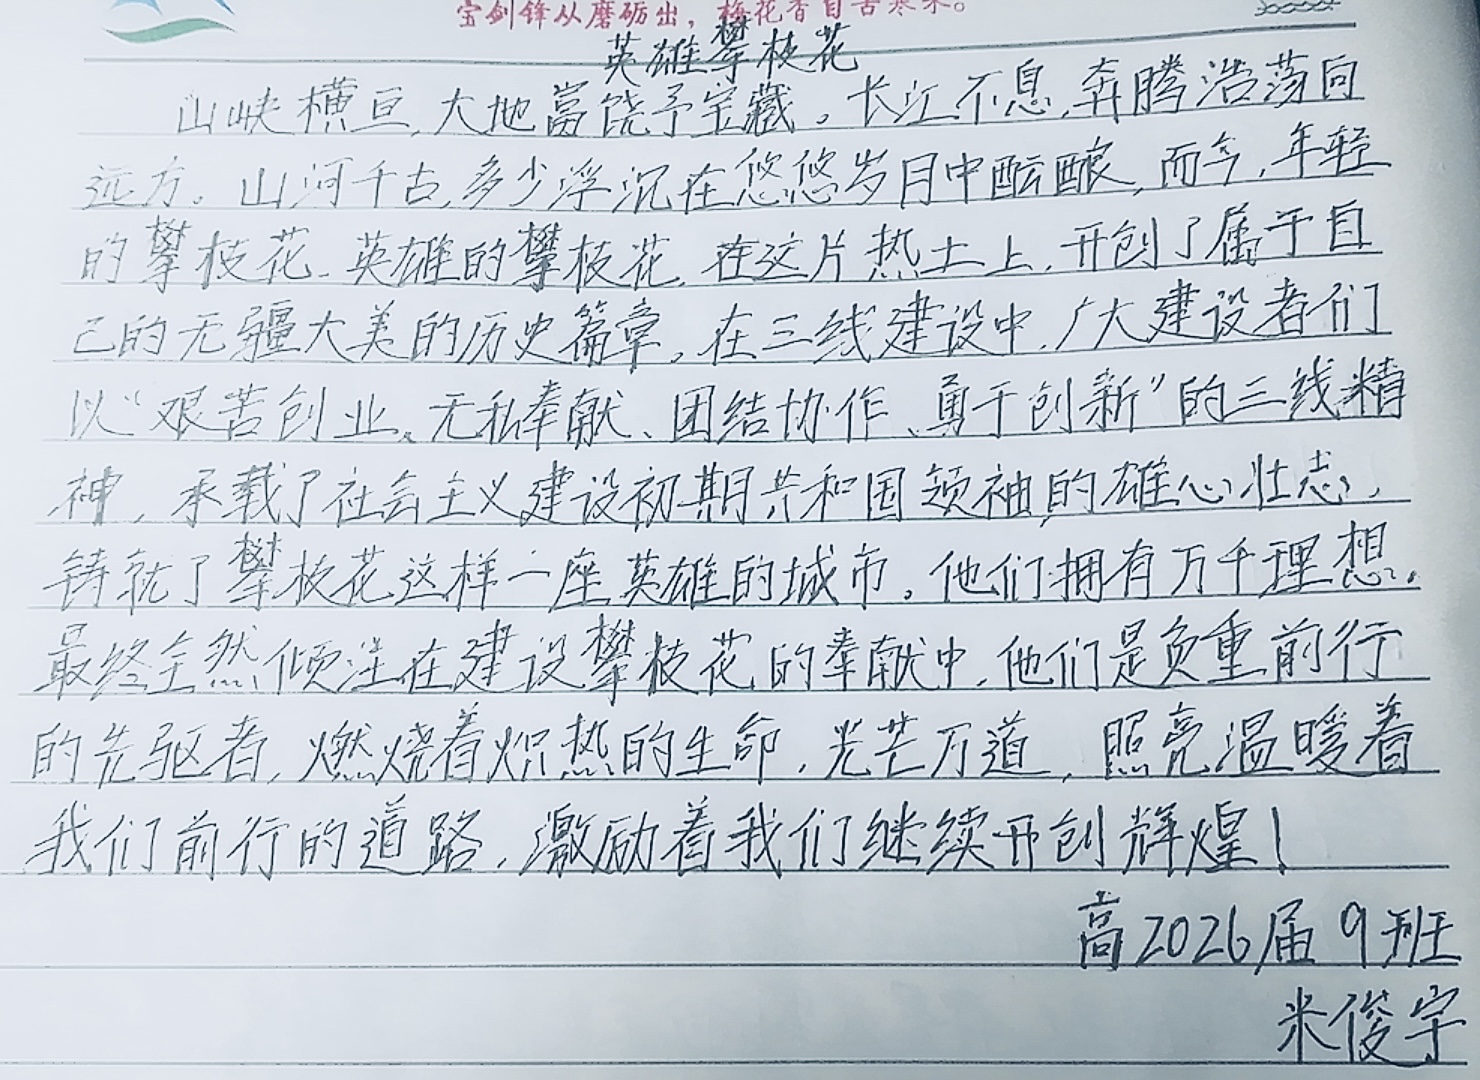 宝剑锋从磨砺出，梅花香自苦寒来。
英雄攀枝花
山峡横亘，大地富饶予宝藏。长江不息，奔腾浩荡向
远方。山河千古，多少浮沉在悠悠岁月中酝酿，而今，年轻
的攀枝花、英雄的攀枝花，在这片热土上，开创了属于自
己的无疆大美的历史篇章。在三线建设中，广大建设者们
以“艰苦创业、无私奉献、团结协作、勇于创新”的三线精
神，承载了社会主义建设初期共和国领袖的雄心壮志，
铸就了攀枝花这样一座英雄的城市。他们拥有万千理想，
最终全然倾注在建设攀枝花的奉献中，他们是负重前行
的先驱者，燃烧着炽热的生命，光芒万道，照亮温暖着
我们前行的道路，激励着我们继续开创辉煌！
高2026届9班
米俊宇